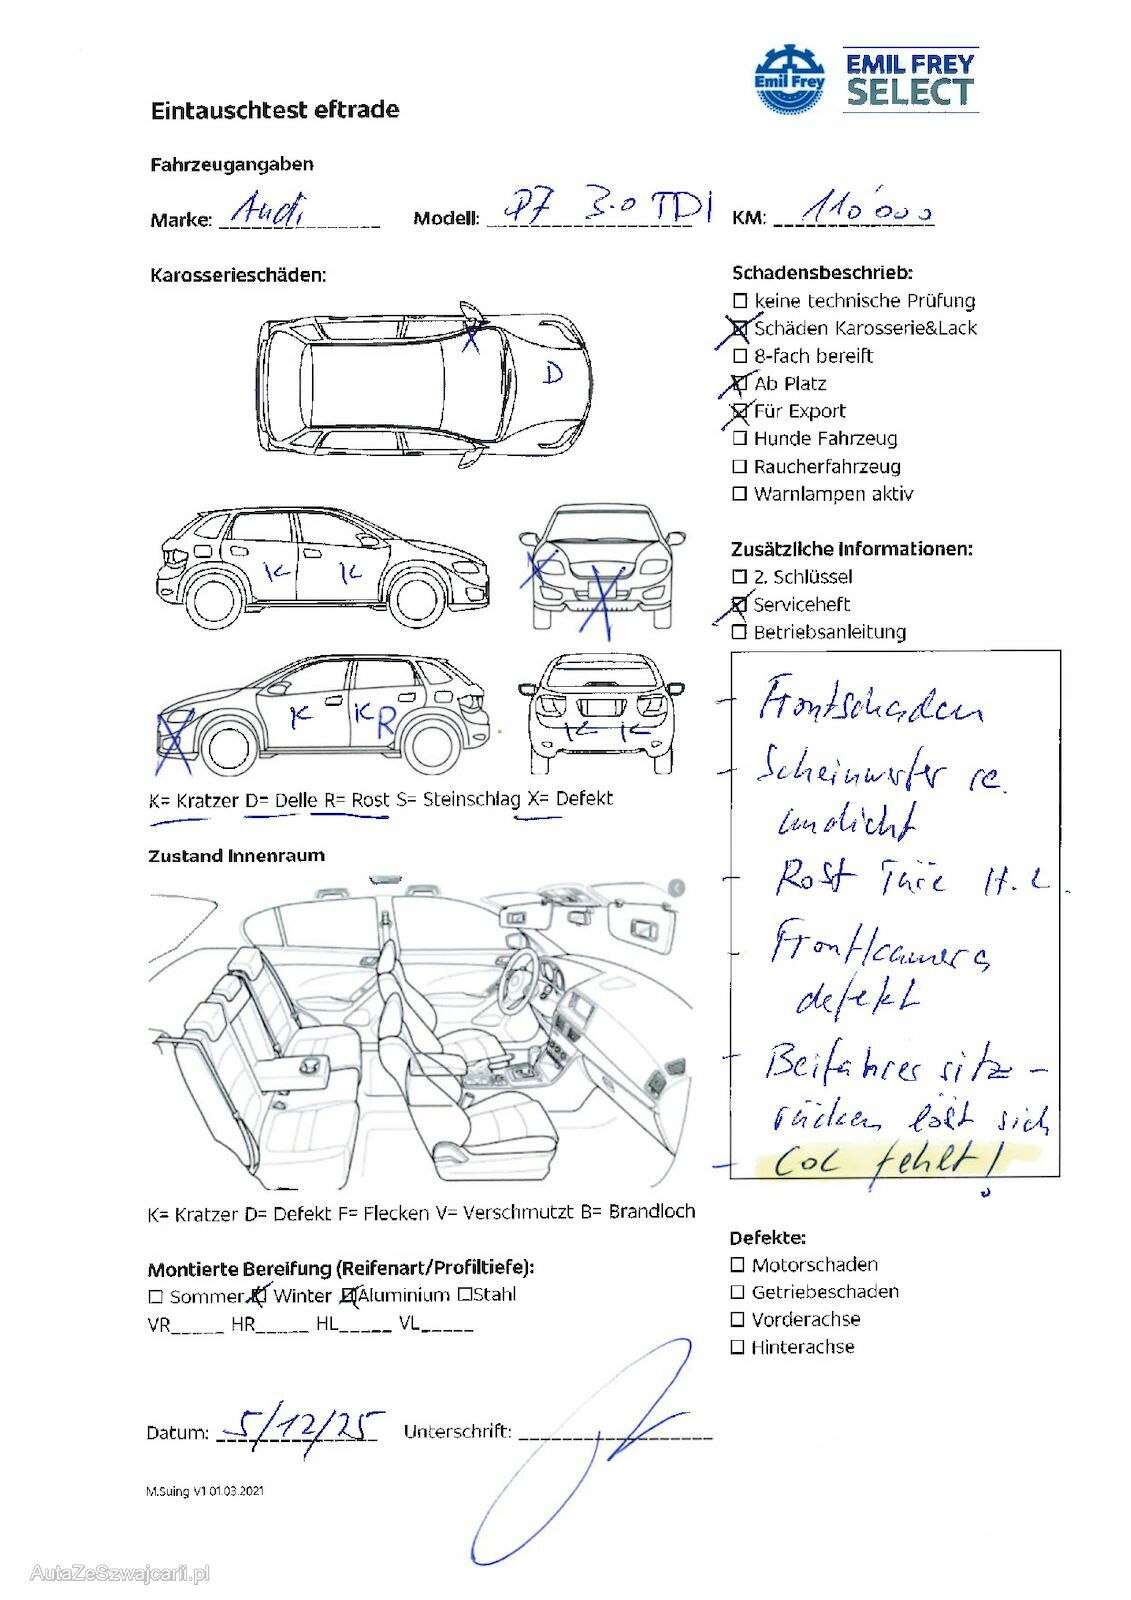 Emil Frey
EMIL FREY
SELECT
Eintauschtest eftrade
Fahrzeugangaben
Marke: Audi Modell: Q7 3.0 TDI KM: 110'000
Karosserieschäden:
D
K K
K K R
K K
K= Kratzer D= Delle R= Rost S= Steinschlag X= Defekt
Zustand Innenraum
K= Kratzer D= Defekt F= Flecken V= Verschmutzt B= Brandloch
Montierte Bereifung (Reifenart/Profiltiefe):
☐ Sommer ☒ Winter ☒ Aluminium ☐ Stahl
VR_____ HR_____ HL_____ VL_____
Schadensbeschrieb:
☐ keine technische Prüfung
☒ Schäden Karosserie&Lack
☐ 8-fach bereift
☒ Ab Platz
☒ Für Export
☐ Hunde Fahrzeug
☐ Raucherfahrzeug
☐ Warnlampen aktiv
Zusätzliche Informationen:
☐ 2. Schlüssel
☒ Serviceheft
☐ Betriebsanleitung
- Frontschaden
- Scheinwerfer re.
undicht
- Rost Türe H.L.
- Frontkamera
defekt
- Beifahrersitz-
rücken löst sich
- CoC fehlt!
Defekte:
☐ Motorschaden
☐ Getriebeschaden
☐ Vorderachse
☐ Hinterachse
Datum: 5/12/25 Unterschrift:
M.Suing V1 01.03.2021
AutaZeSzwajcarii.pl